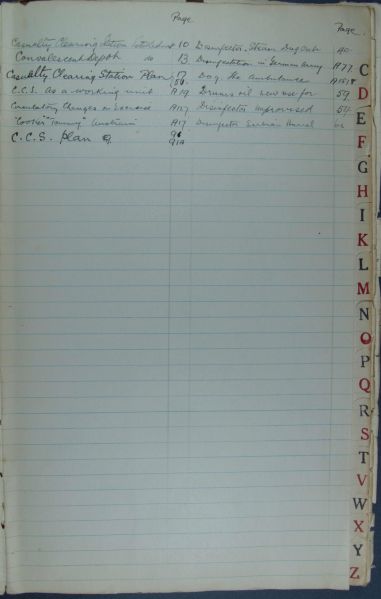 Page
Page
Casualty Clearing Station 10 Disinfector. Steam Dug out 40
Convalescent Depot do 13 Disinfestation in German Army A77
Casualty Clearing Station Plan 17 Dog. The ambulance
56
C.C.S. as a working unit A19 Drums oil new use for 59
Circulatory Changes in Exercise A117 Disinfector improvised 54
"Cooker" "Tommy" A17 Disinfector Serbian Barrel
C.C.S. Plan 96
C
D
E
F
G
H
I
K
L
M
N
O
P
Q
R
S
T
V
W
X
Y
Z